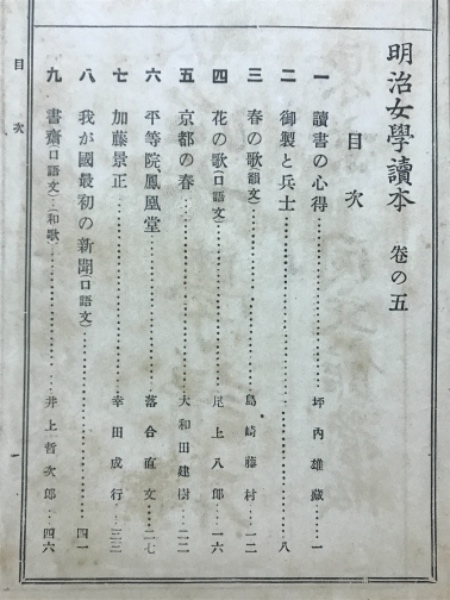 明治女學讀本 卷の五
目次
一 讀書の心得……坪內雄藏……一
二 御製と兵士……八
三 春の歌(韻文)……島崎藤村……一二
四 花の歌(口語文)……尾上八郎……一六
五 京都の春……大和田建樹……二二
六 平等院、鳳凰堂……落合直文……二七
七 加藤景正……幸田成行……三三
八 我が國最初の新聞(口語文)……四一
九 書齋(口語文)…和歌……井上哲次郎……四六
目次
一